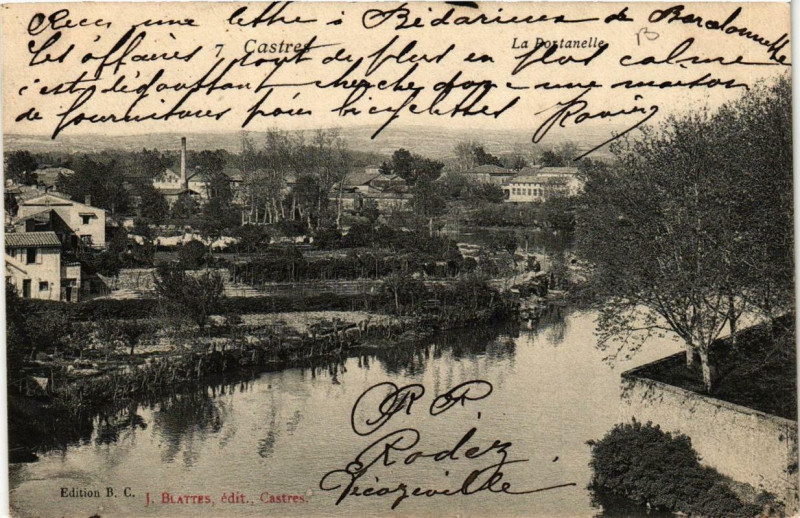 Reçu une lettre à Bédarieux de Barcelonnette
7 Castres La Portanelle B
les affaires sont de plus en plus calme
c'est dégouttant cherche donc une maison
de fournitures pour bicyclettes Ravière
PR PR
Rodez
Decazeville
Edition B. C. J. BLATTES, édit., Castres.